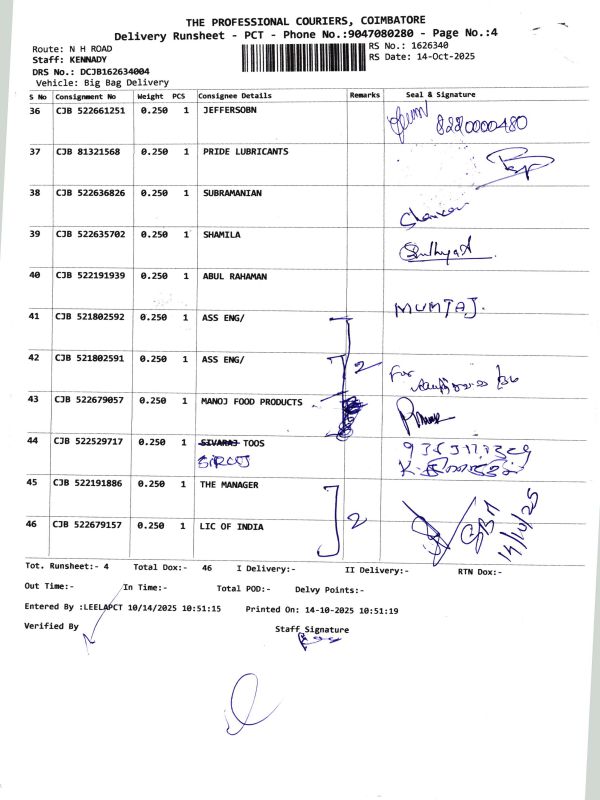 THE PROFESSIONAL COURIERS, COIMBATORE
Delivery Runsheet - PCT - Phone No.:9047080280 - Page No.:4
Route: N H ROAD
RS No.: 1626340
Staff: KENNADY
RS Date: 14-Oct-2025
DRS No.: DCJB162634004
Vehicle: Big Bag Delivery
S No Consignment No Weight PCS Consignee Details Remarks Seal & Signature
36 CJB 522661251 0.250 1 JEFFERSOBN 8220000480
37 CJB 81321568 0.250 1 PRIDE LUBRICANTS
38 CJB 522636826 0.250 1 SUBRAMANIAN
39 CJB 522635702 0.250 1 SHAMILA
40 CJB 522191939 0.250 1 ABUL RAHAMAN MUMTAJ.
41 CJB 521802592 0.250 1 ASS ENG/
42 CJB 521802591 0.250 1 ASS ENG/ 2 For
43 CJB 522679057 0.250 1 MANOJ FOOD PRODUCTS
44 CJB 522529717 0.250 1 SIVARAJ TOOS
45 CJB 522191886 0.250 1 THE MANAGER
46 CJB 522679157 0.250 1 LIC OF INDIA 2 14/10/25
Tot. Runsheet:- 4 Total Dox:- 46 I Delivery:- II Delivery:- RTN Dox:-
Out Time:- In Time:- Total POD:- Delvy Points:-
Entered By :LEELAPCT 10/14/2025 10:51:15 Printed On: 14-10-2025 10:51:19
Verified By Staff Signature